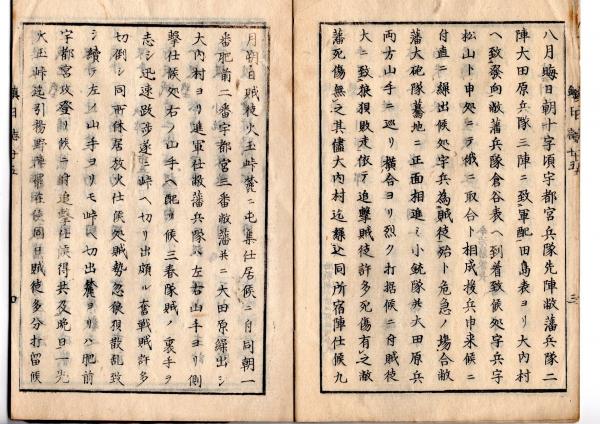 八月晦日朝十字頃宇都宮兵隊先陣敝藩兵隊二
陣大田原兵隊三陣ニ致軍配田島表ヨリ大内村
ヘ致發向敝藩兵隊倉谷表ヘ到着致候処字兵字
松山ト申処ニテ戦ニ取合ト相成援兵申来候ニ
付直ニ繰出候処字兵為賊徒殆ト危急ノ場合敝
藩大砲隊驀地ニ正面相進ミ小銃隊共大田原兵
両方山手ニ廻リ横合ヨリ烈ク打掛候ニ付賊徒
大ニ致狼狽敗走依テ追撃賊徒許多死傷有之敝
藩死傷無之其儘大内村迄繰込同所宿陣仕候九
三
月朔日賊徒火玉峠麓ニ屯集仕居候ニ付同朝一
番肥前二番宇都宮三番敝藩共ニ大田原繰出シ
大内村ヨリ進軍仕敝藩兵隊ハ左右山手ヨリ側
撃仕候処右ノ山手ヘ配リ候三春隊賊ノ裏手ヲ
志シ迅速跋渉遂ニ峠ヘ切リ出頻ニ奮戦賊許多
切倒シ同所休居放火仕候処賊勢忽狼狽散乱致
シ續テ左ノ山手ヨリモ峠ヘ切出麓ヨリハ肥前
宇都宮攻登リ候ニ付追撃仕候得共及晩日一先
火玉峠迄引揚野陣罷在候同日賊徒多分打留候
鎮日誌廿五
四